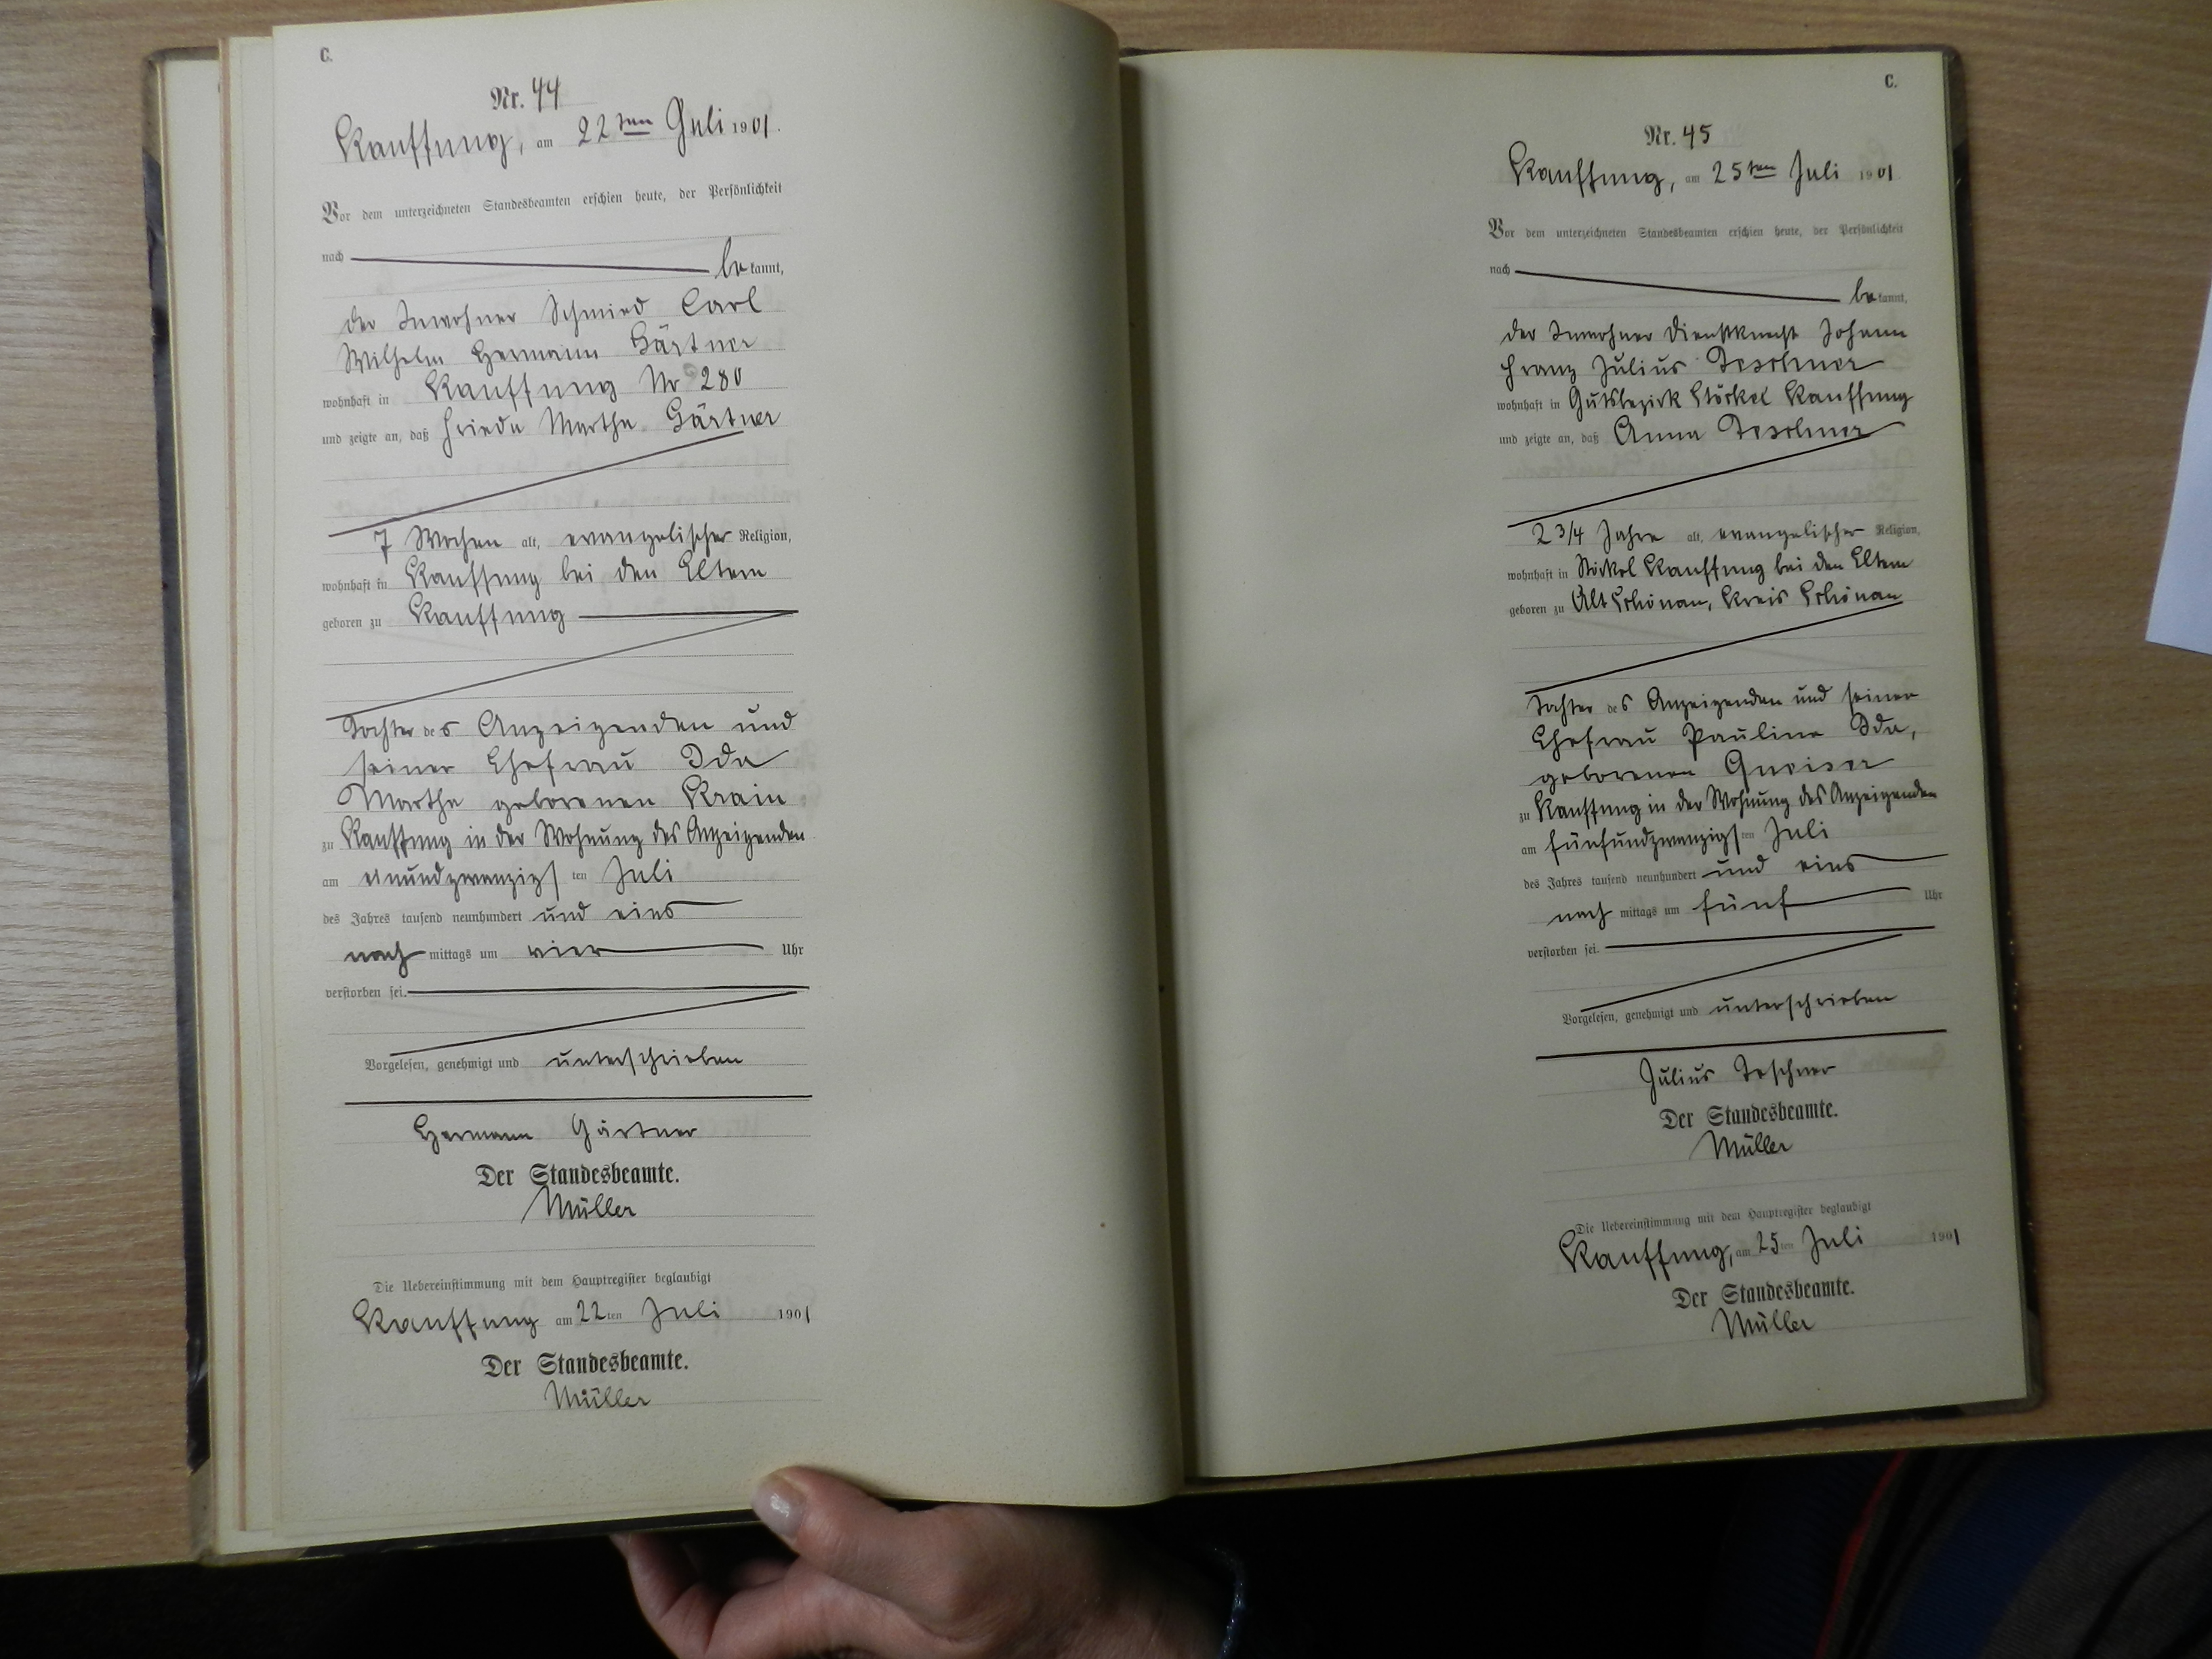 C.
Nr. 44
Kauffung, am 22ten Juli 1901.
Vor dem unterzeichneten Standesbeamten erschien heute, der Persönlichkeit
nach be kannt,
der Inwohner Schmied Carl
Wilhelm Hermann Gärtner
wohnhaft in Kauffung Nr 280
und zeigte an, daß Frieda Martha Gärtner
7 Wochen alt, evangelischer Religion,
wohnhaft in Kauffung bei den Eltern
geboren zu Kauffung
Tochter des Anzeigenden und
seiner Ehefrau Ida
Martha geborenen Krain
zu Kauffung in der Wohnung des Anzeigenden
am einundzwanzigsten Juli
des Jahres tausend neunhundert und eins
nach mittags um vier Uhr
verstorben sei.
Vorgelesen, genehmigt und unterschrieben
Hermann Gärtner
Der Standesbeamte.
Müller
Die Uebereinstimmung mit dem Hauptregister beglaubigt
Kauffung am 22ten Juli 1901
Der Standesbeamte.
Müller
C.
Nr. 45
Kauffung, am 25ten Juli 1901
Vor dem unterzeichneten Standesbeamten erschien heute, der Persönlichkeit
nach be kannt,
der Inwohner Dienstknecht Johann
Franz Julius Teschner
wohnhaft in Gutsbezirk Stöckel Kauffung
und zeigte an, daß Anna Teschner
2 3/4 Jahre alt, evangelischer Religion,
wohnhaft in Stöckel Kauffung bei den Eltern
geboren zu Alt Schönau, Kreis Schönau
Tochter des Anzeigenden und seiner
Ehefrau Pauline Ida,
geborenen Gneiser
zu Kauffung in der Wohnung des Anzeigenden
am fünfundzwanzigsten Juli
des Jahres tausend neunhundert und eins
nach mittags um fünf Uhr
verstorben sei.
Vorgelesen, genehmigt und unterschrieben
Julius Teschner
Der Standesbeamte.
Müller
Die Uebereinstimmung mit dem Hauptregister beglaubigt
Kauffung, am 25ten Juli 1901
Der Standesbeamte.
Müller